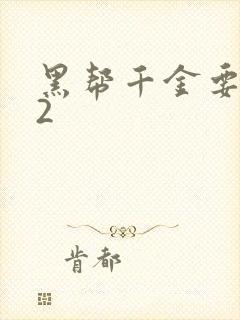 黑帮千金要
2
肯都